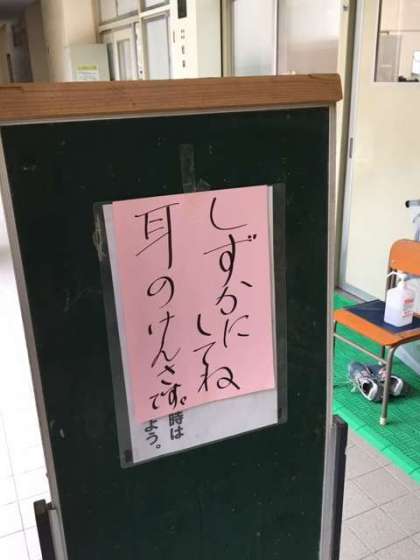 しずかに
してね
耳のけんさです。
時は
よう。